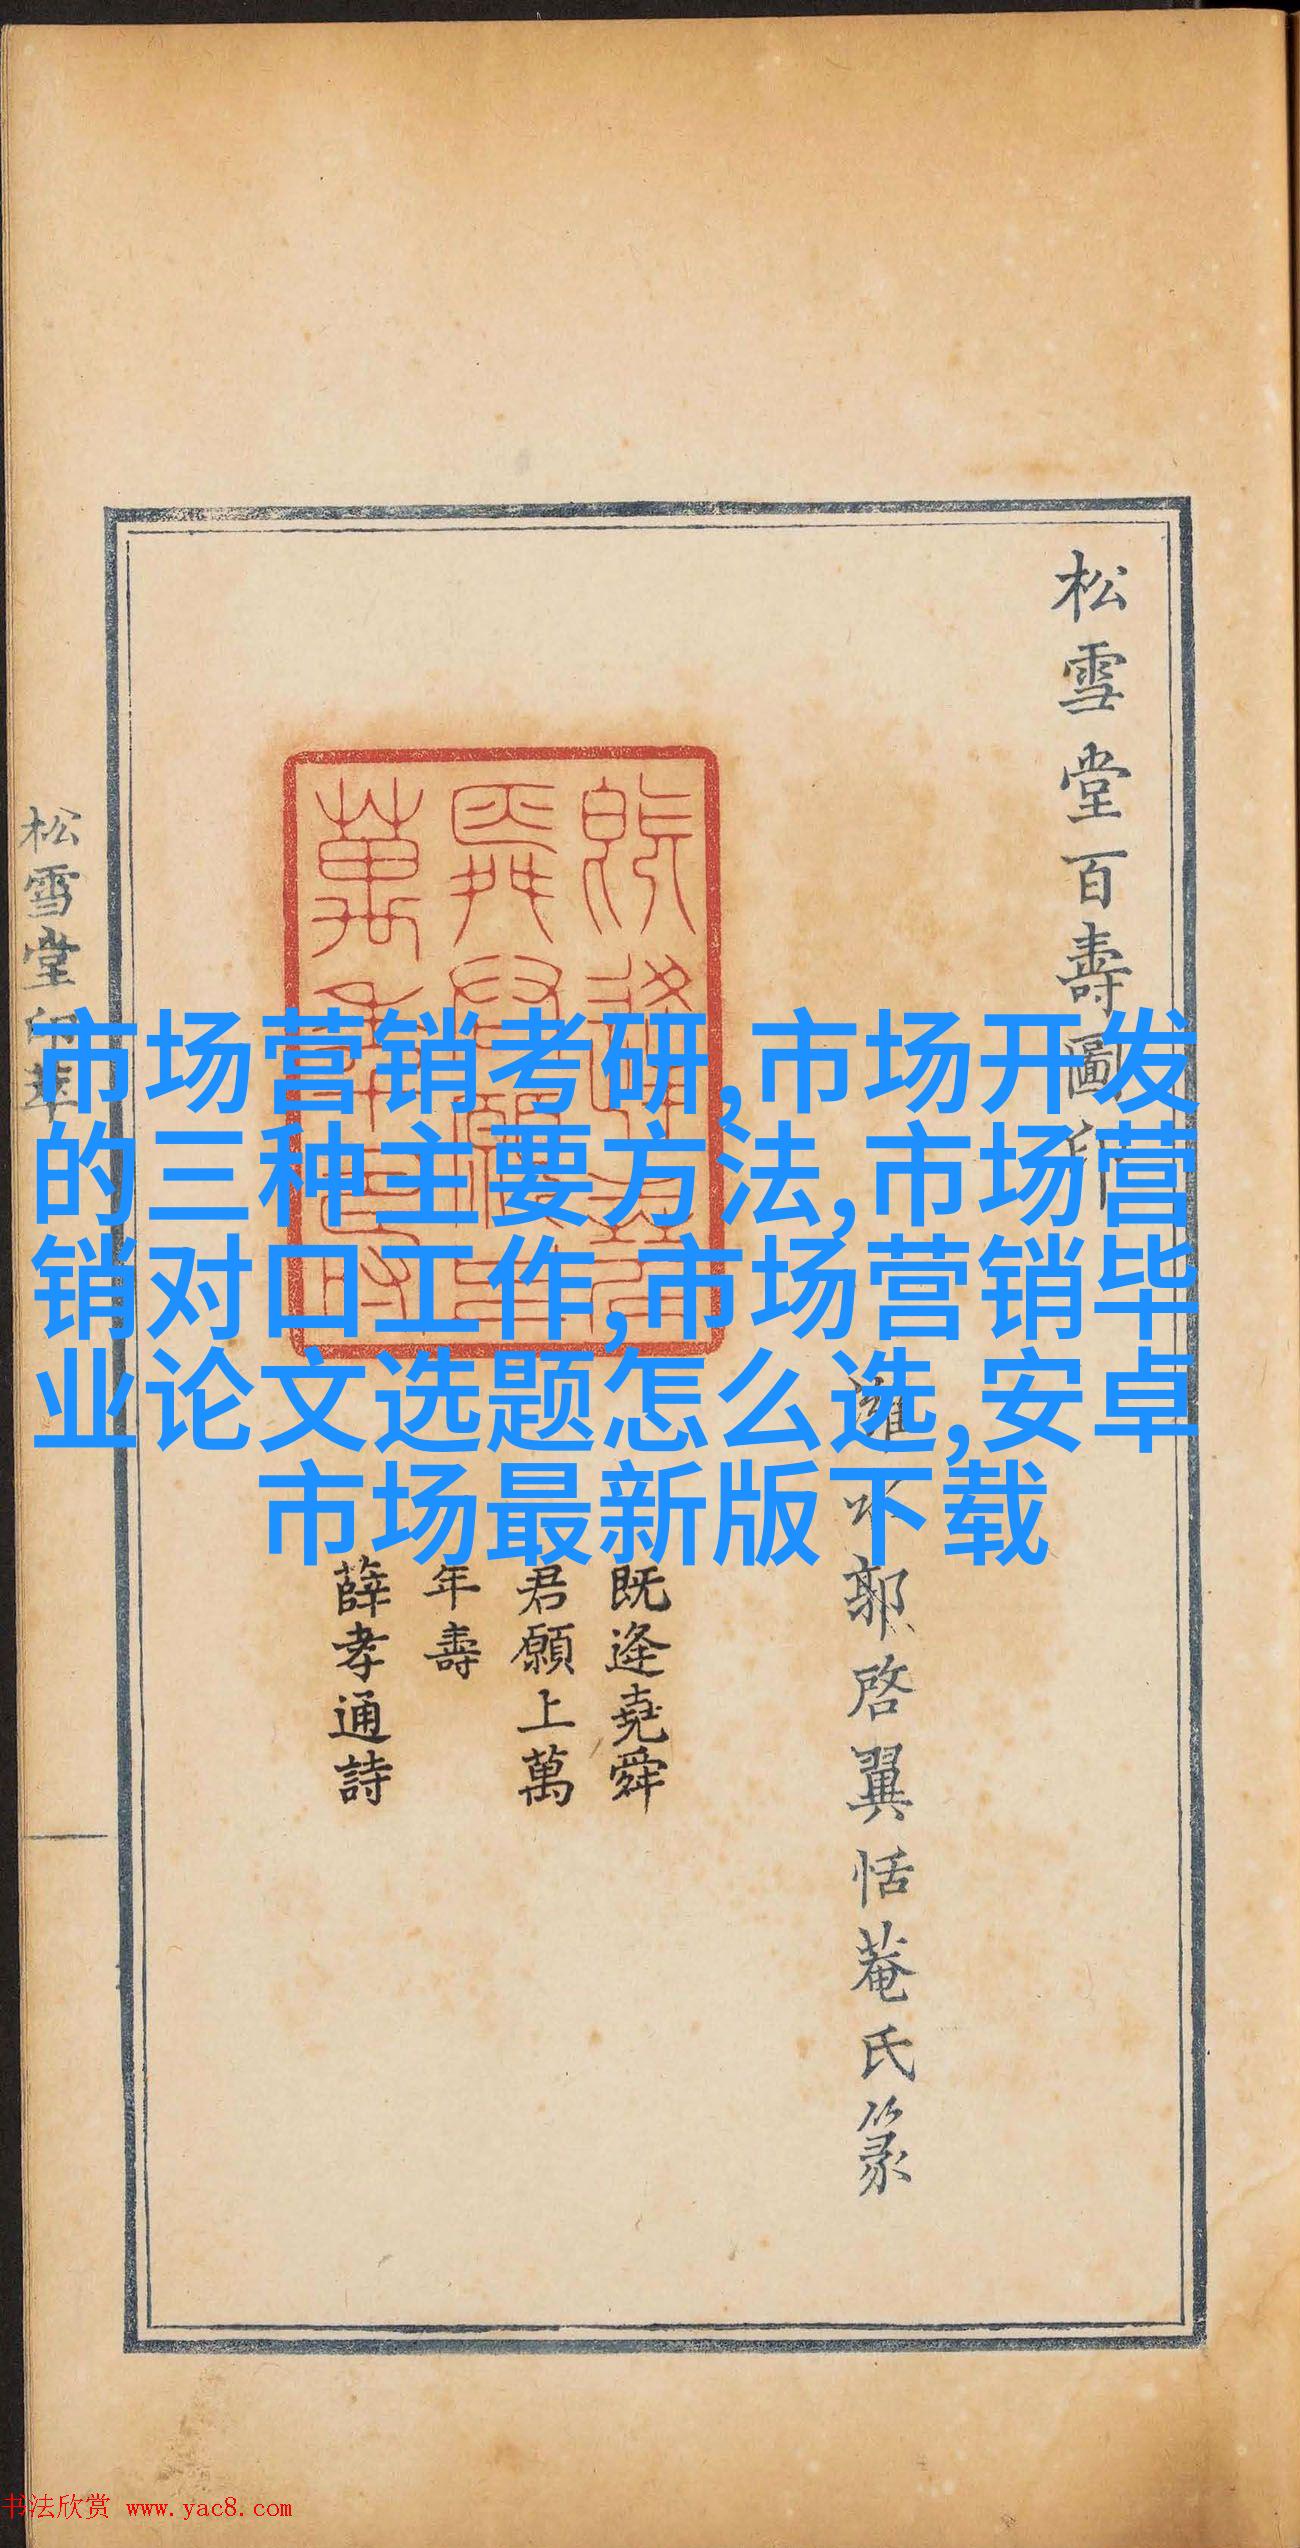 松雪堂百壽圖印
濰水郭啓翼恬菴氏篆
既逢堯舜
君願上萬
年壽
薛孝通詩
松雪堂印萃
市场营销考研,市场开发
的三种主要方法,市场营
销对口工作,市场营销毕
业论文选题怎么选,安卓
市场最新版下载
书法欣赏 www.yac8.com